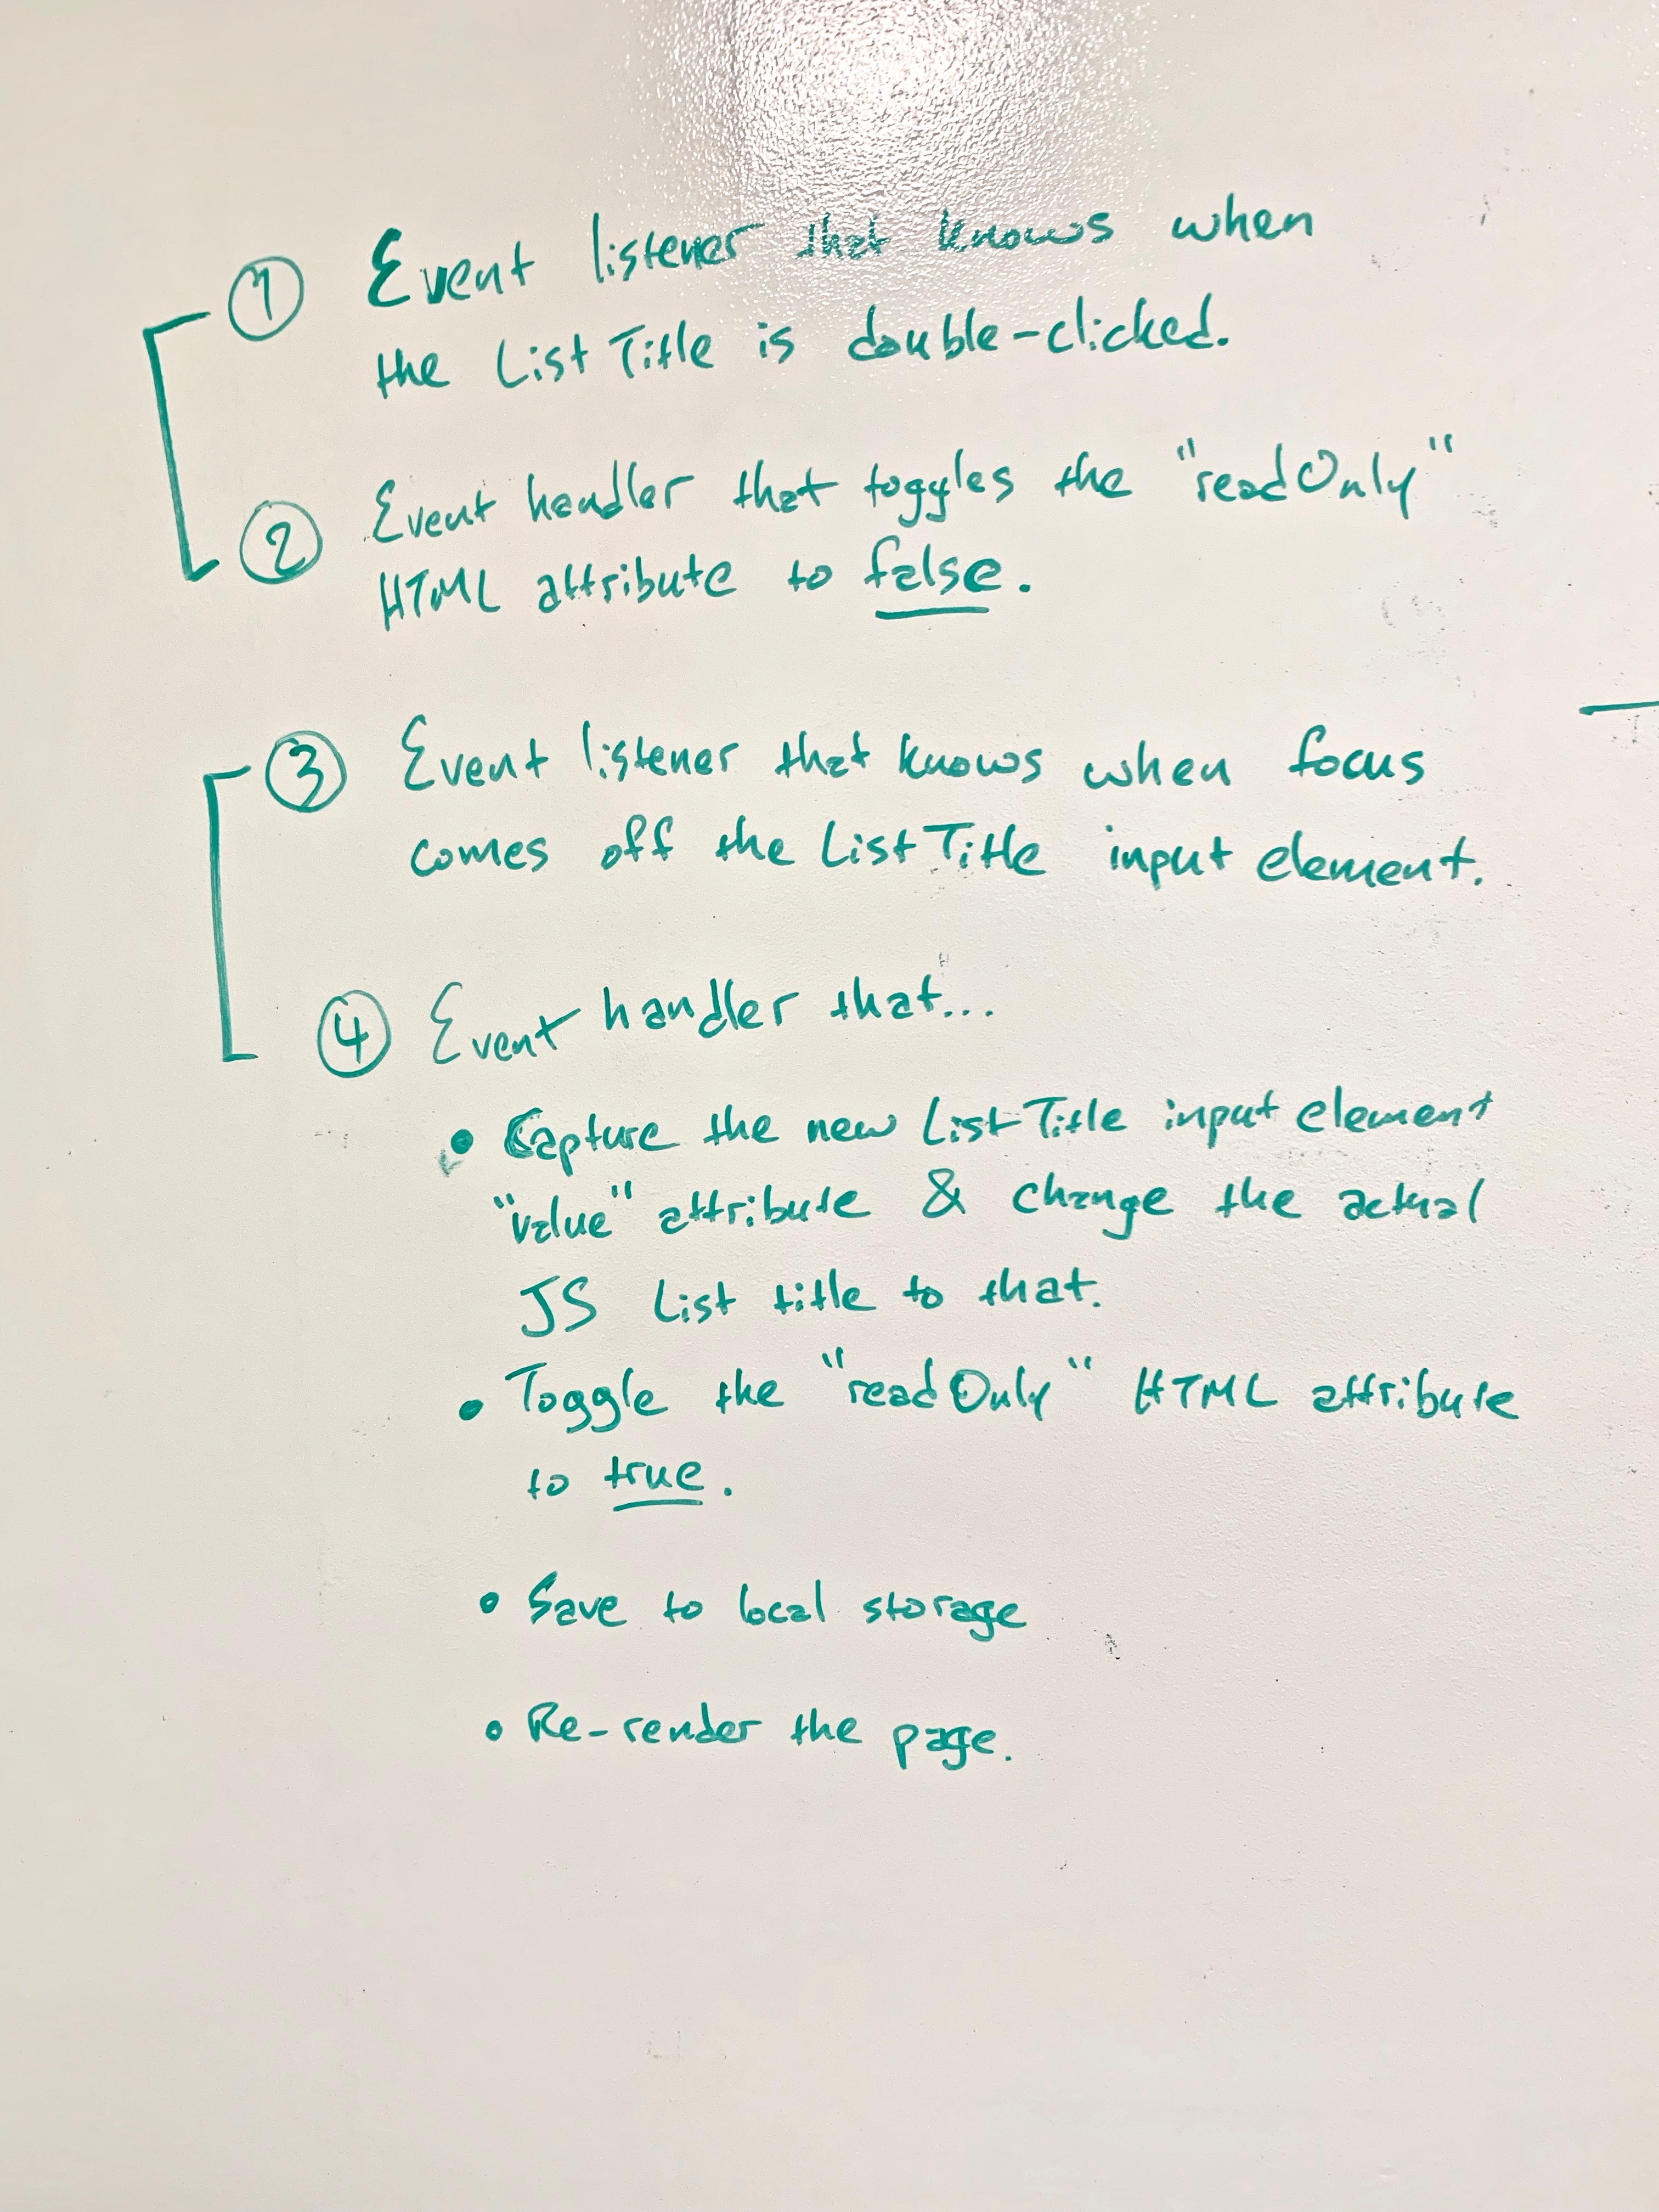 ① Event listener that knows when
the List Title is double-clicked.
② Event handler that toggles the "readOnly"
HTML attribute to false.
③ Event listener that knows when focus
comes off the List Title input element.
④ Event handler that...
• Capture the new List Title input element
"value" attribute & change the actual
JS List title to that.
• Toggle the "readOnly" HTML attribute
to true.
• Save to local storage
• Re-render the page.